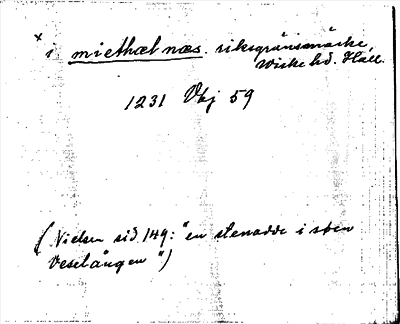 × i miethæl næs. riksgränsmärke,
Wiske hd. Hall.
1231 Vbj 59
(Nielsen sid. 149: "en stenodde i søen
Veselången")